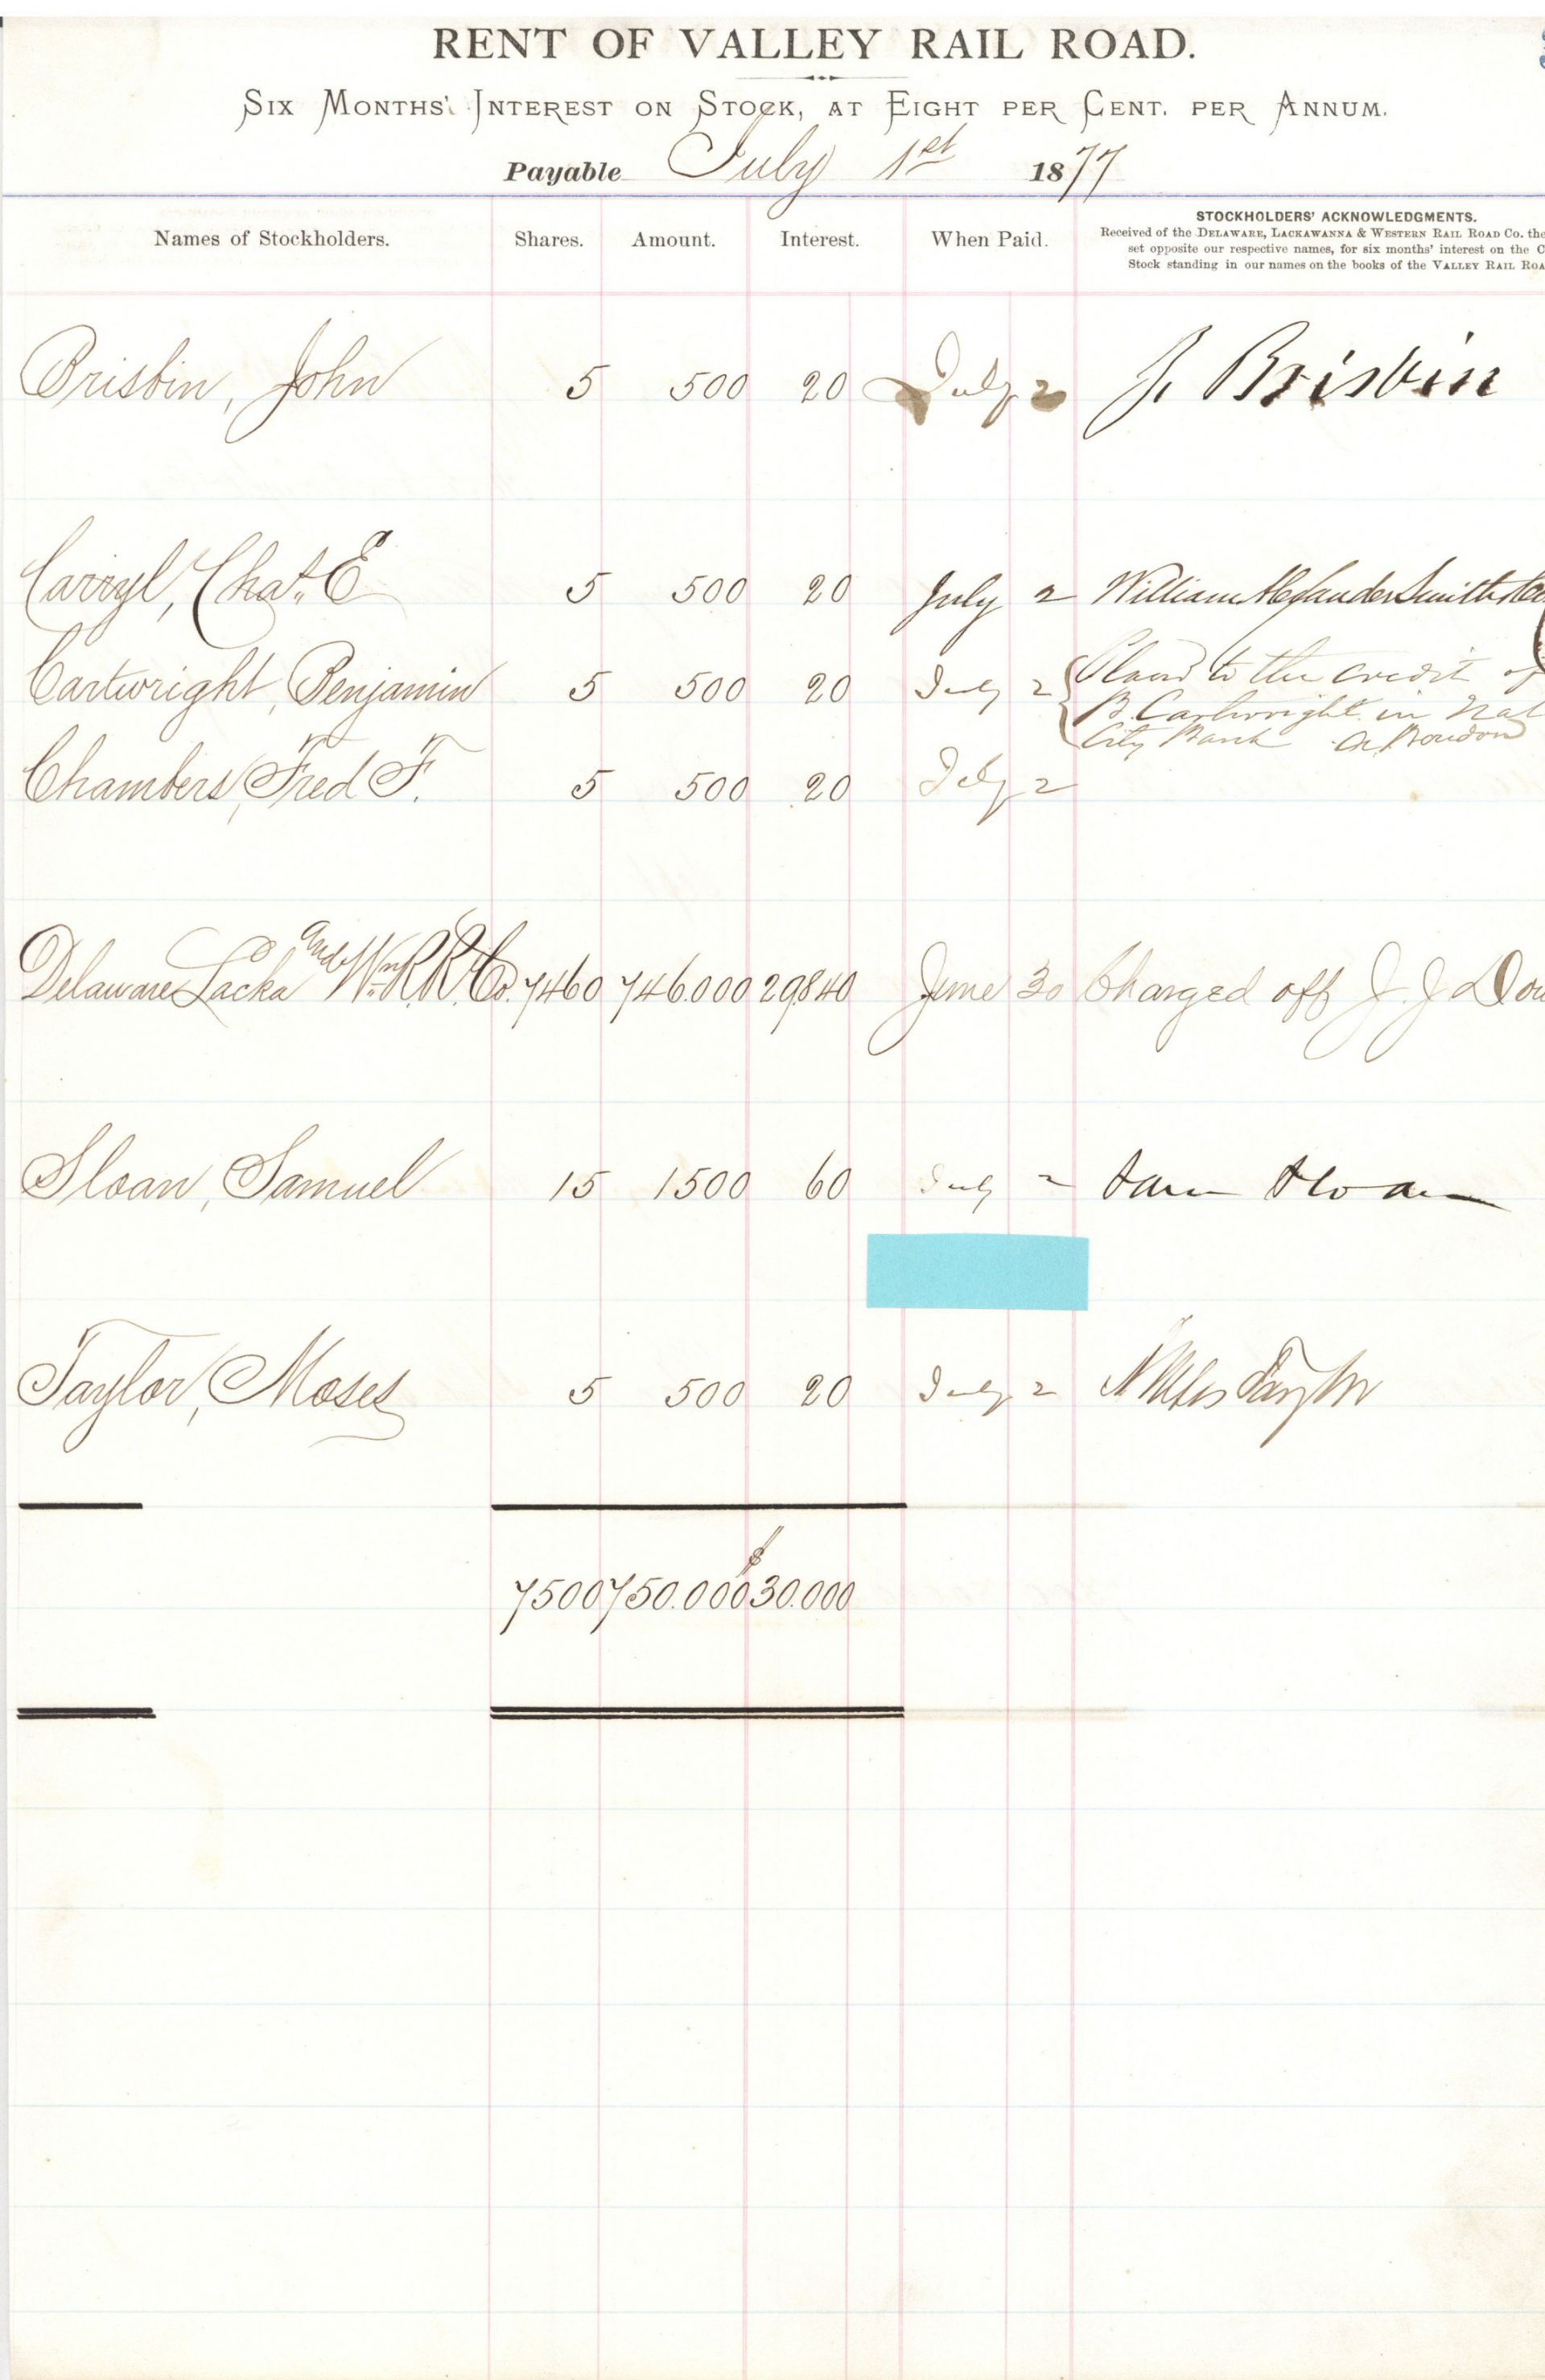 RENT OF VALLEY RAIL ROAD.
SIX MONTHS' INTEREST ON STOCK, AT EIGHT PER CENT. PER ANNUM.
Payable July 1st 1877
Names of Stockholders. Shares. Amount. Interest. When Paid. STOCKHOLDERS' ACKNOWLEDGMENTS.
Received of the DELAWARE, LACKAWANNA & WESTERN RAIL ROAD Co. the
set opposite our respective names, for six months' interest on the C
Stock standing in our names on the books of the VALLEY RAIL ROA
Brisbin, John 5 500 20 July 2 J. Brisbin
Carryl, Chas. E 5 500 20 July 2 William Alexander Smith
Cartwright, Benjamin 5 500 20 July 2 to the credit of
B. Cartwright in Nat
City Bank
Chambers, Fred F. 5 500 20 July 2
Delaware Lacka and Wn. R.R. Co. 7460 746.000 29840 June 30 Charged off J. J.
Sloan, Samuel 15 1500 60 July 2 Sam Sloan
Taylor, Moses 5 500 20 July 2 Moses Taylor
$
7500 750.000 30.000